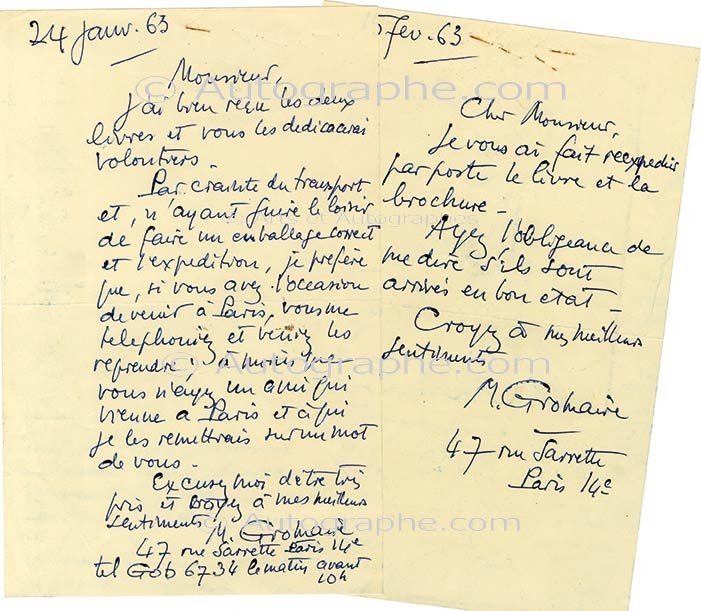 24 janv. 63
Monsieur,
J'ai bien reçu les deux
livres et vous les dedicacerai
volontiers.
Par crainte du transport
et, n'ayant guère le loisir
de faire un emballage correct
et l'expedition, je préfère
que, si vous avez l'occasion
de venir à Paris, vous me
telephoniez et veniez les
reprendre; à moins que
vous n'ayez un ami qui
vienne à Paris et à qui
je les remettrais sur un mot
de vous.
Excusez moi d'être très
pris et croyez à mes meilleurs
sentiments
M. Gromaire
47 rue Sarrette Paris 14e
tel Gob 6734 le matin avant
10h
fev. 63
Cher Monsieur,
Je vous ai fait reexpedier
par poste le livre et la
brochure -
Ayez l'obligeance de
me dire s'ils sont
arrivés en bon etat -
Croyez à mes meilleurs
sentiments
M. Gromaire
47 rue Sarrette
Paris 14e
© Autographe.com
© Arts et Autographes
© Autographe.com
© Autographe.com